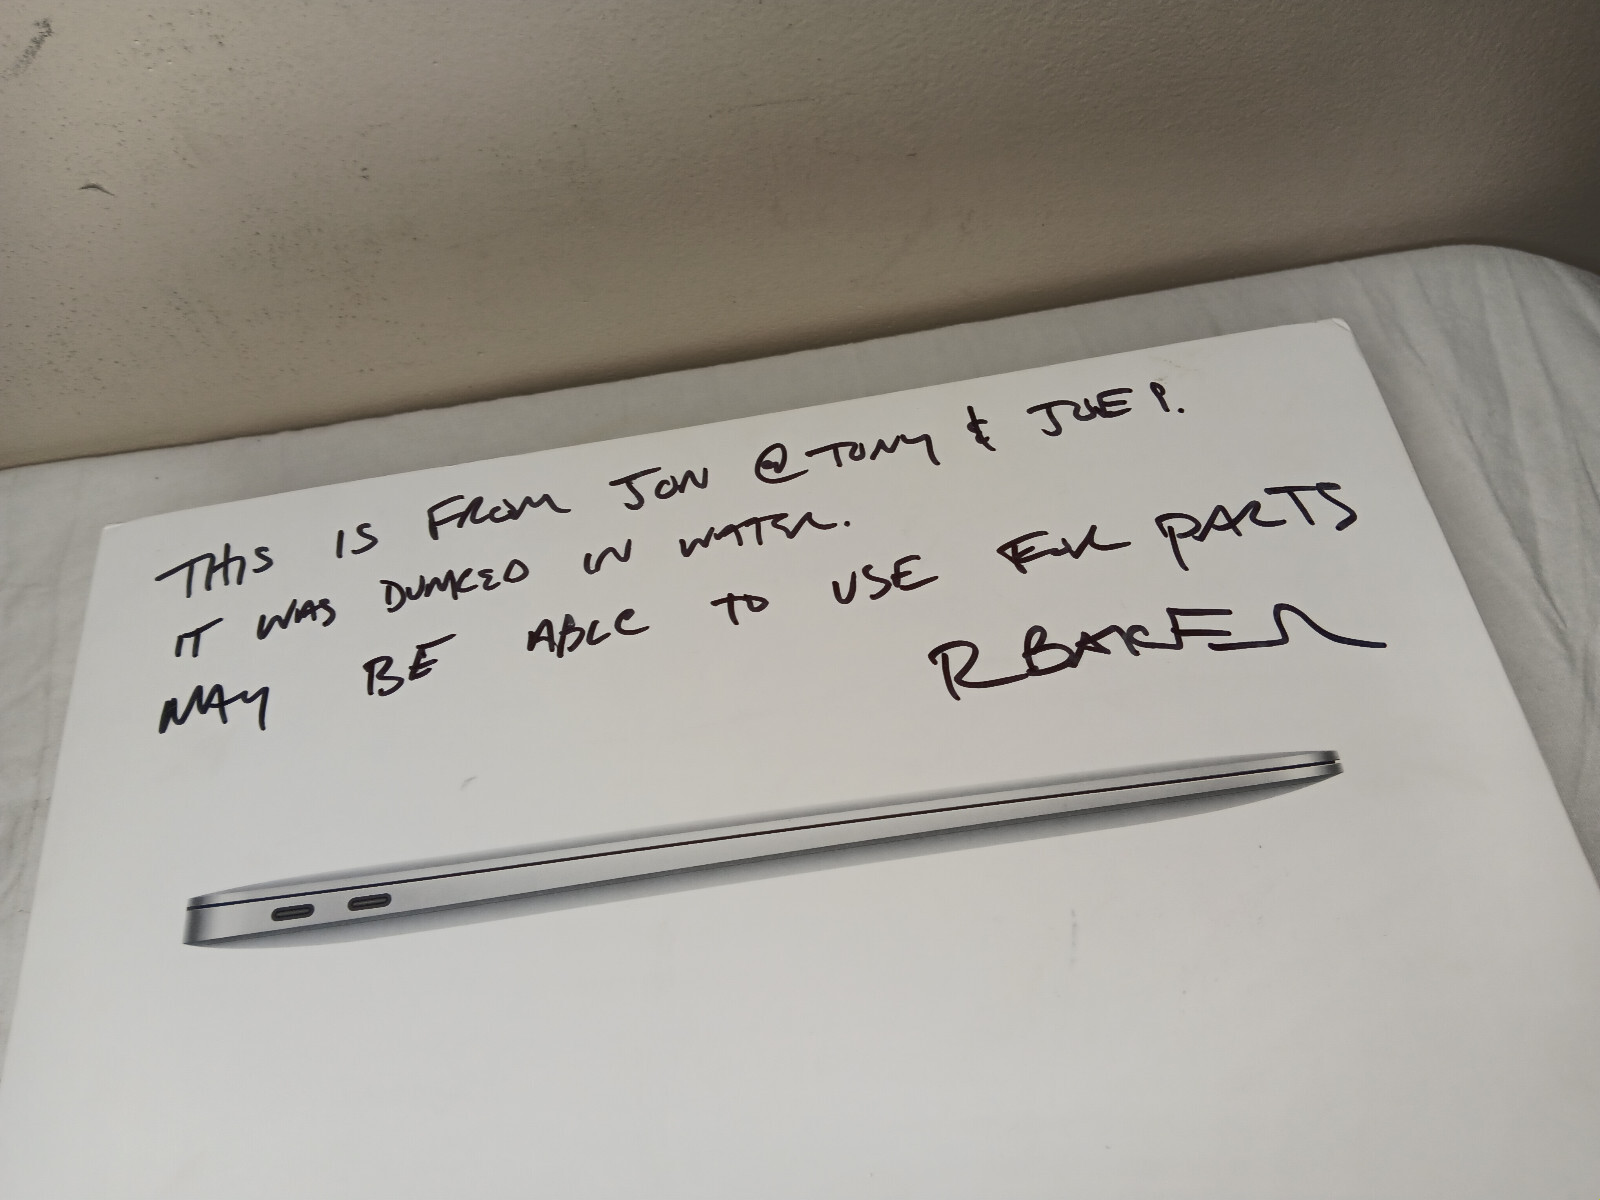 THIS IS FROM JON @ TONY & JOE P.
IT WAS DUNKED IN WATER.
MAY BE ABLE TO USE FOR PARTS
R BAKER